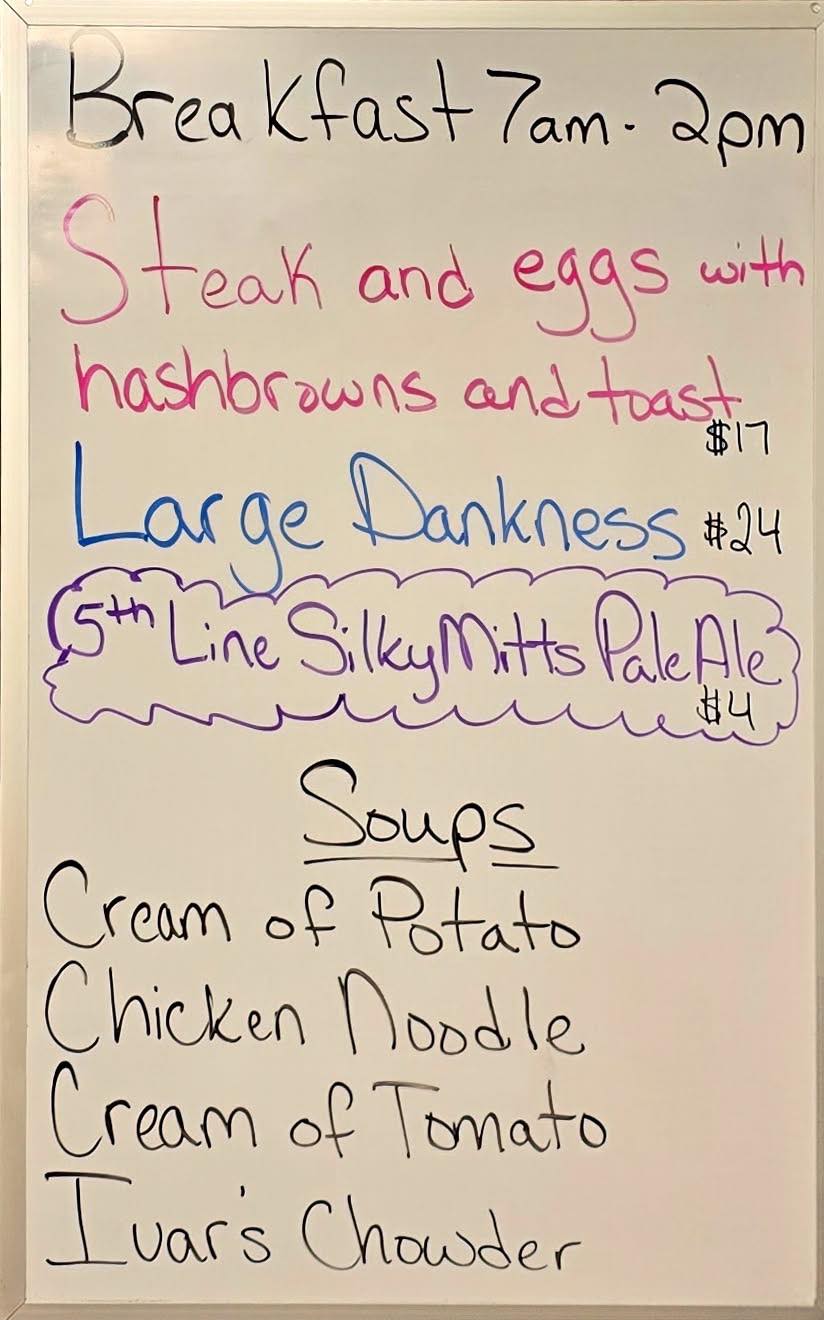 Breakfast 7am - 2pm
Steak and eggs with
hashbrowns and toast
$17
Large Dankness $24
5th Line Silky Mitts Pale Ale
$4
Soups
Cream of Potato
Chicken Noodle
Cream of Tomato
Ivar's Chowder